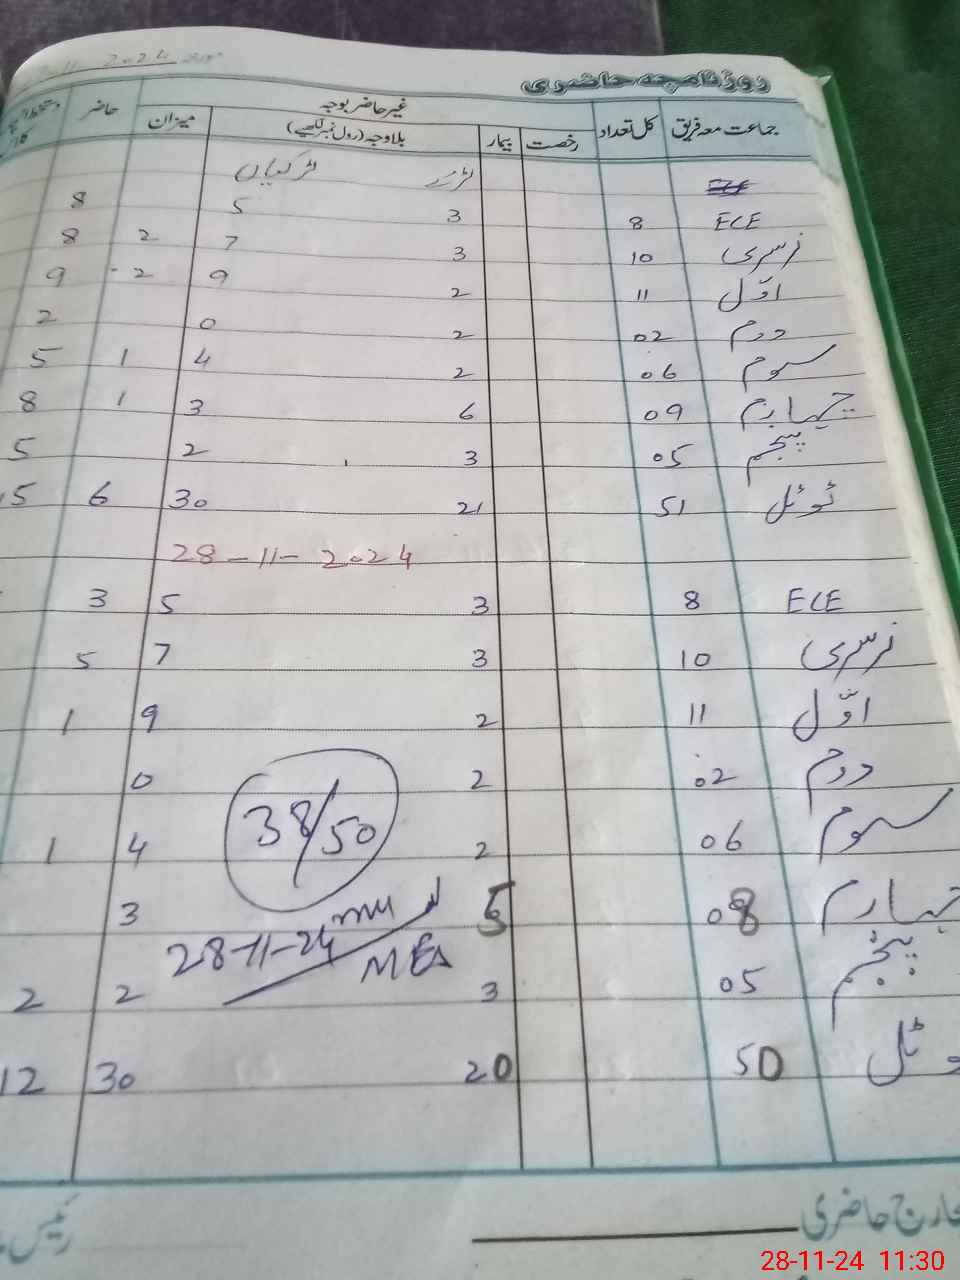 روزنامچہ حاضری
جماعت معہ فریق کل تعداد رخصت بیمار غیر حاضر بوجہ بلاوجہ (رول نمبر لکھیے) میزان حاضر
لڑکے لڑکیاں
ECE 8 3 5 8
نرسری 10 3 7 2 8
اوّل 11 2 9 2 9
دوم 02 2 0 2
سوم 06 2 4 1 5
چہارم 09 6 3 1 8
پنجم 05 3 2 5
ٹوٹل 51 21 30 6
28-11-2024
ECE 8 3 5 3
نرسری 10 3 7 5
اوّل 11 2 9 1
دوم 02 2 0
سوم 06 2 4 1
چہارم 08 5 3
پنجم 05 3 2 2
ٹوٹل 50 20 30 12
38/50
28-11-24
MEA
حاضری
28-11-24 11:30